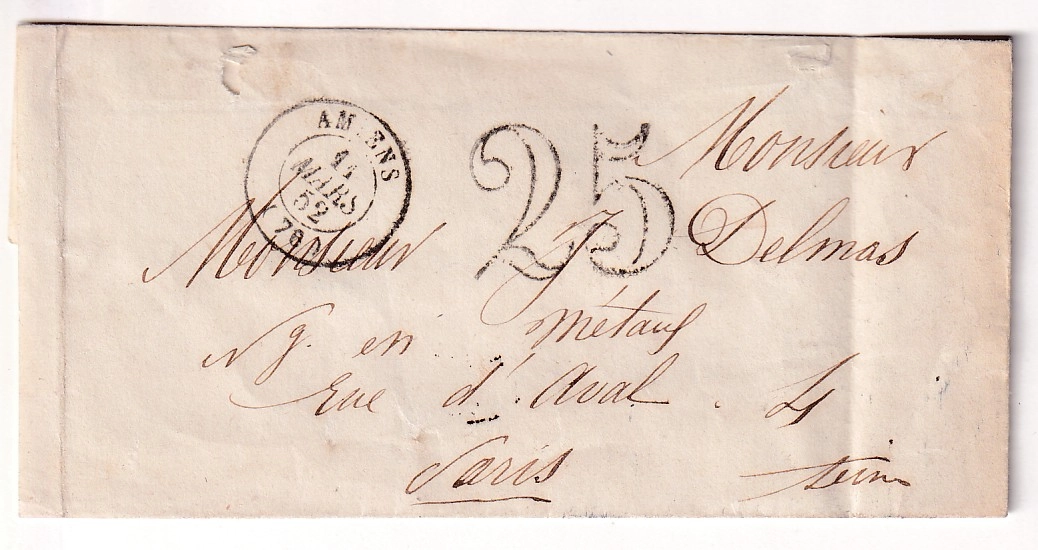 AMIENS
11
MARS
52
(76)
25
Monsieur
Monsieur J Delmas
Ng. en Métaux
Rue d'Aval. 4
Paris Seine